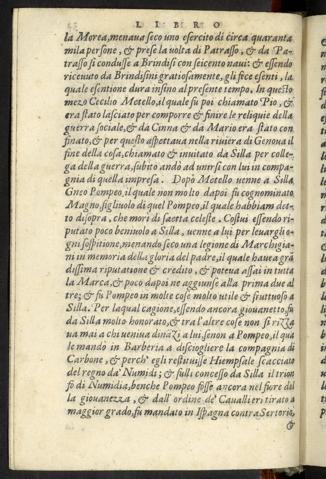 LIBRO
la Morea, menaua seco uno esercito di circa quaranta
mila persone, & prese la uolta di Patrasso, & da Pa-
trasso si condusse a Brindisi con seicento naui: & essendo
riceuuto da Brindisini gratiosamente, gli fice esenti, la
quale esentione dura insino al presente tempo. In questo
mezo Cecilio Metello, il quale fu poi chiamato Pio, &
era stato lasciato per comporre & finire le reliquie della
guerra sociale, & da Cinna & da Mario era stato con
finato, & per questo aspettaua nella riuiera di Genoua il
fine della cosa, chiamato & inuitato da Silla per colle-
ga della guerra, subito andò ad unirsi con lui in compa-
gnia di quella impresa. Dopò Metello uenne a Silla
Gneo Pompeo, il quale non molto dapoi fu cognominato
Magno, figliuolo di quel Pompeo, il quale habbiam det-
to disopra, che mori di saetta celeste. Costui essendo ri-
putato poco beniuolo a Silla, uenne a lui per leuar glio-
gni sospitione, menando seco una legione di Marchigia-
ni in memoria della gloria del padre, il quale hauea grã
dissima riputatione & credito, & poteua assai in tutta
la Marca, & poco dapoi ne aggiunse alla prima due al
tre; & fu Pompeo in molte cose molto utile & fruttuoso a
Silla. Per laqual cagione, essendo ancora giouanetto, fu
da Silla molto honorato, & tra l'altre cose non si rizza
ua mai a chi ueniua dinãzi a lui senon a Pompeo, il qua
le mandò in Barberia a disciogliere la compagnia di
Carbone, & perch' egli restituisse Hiempsale scacciato
del regno da' Numidi; & fulli concesso da Silla il trion
fo di Numidia, benche Pompeo fosse ancora nel fiore dil
la giouanezza, & dall'ordine de' Cauallieri tirato a
maggior grado, fu mandato in Ispagna contra Sertorio,
&